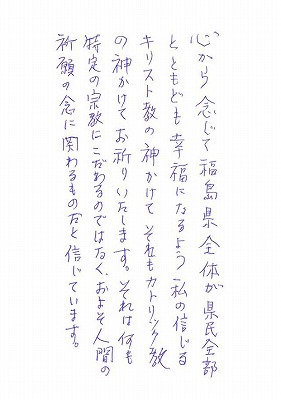 心から念じて福島県全体が県民全部
とともども幸福になるよう私の信じる
キリスト教の神かけてそれもカトリック教
の神かけてお祈りいたします。それは何も
特定の宗教にこだわるのではなく、およそ人間の
祈願の念に関わるものだと信じています。